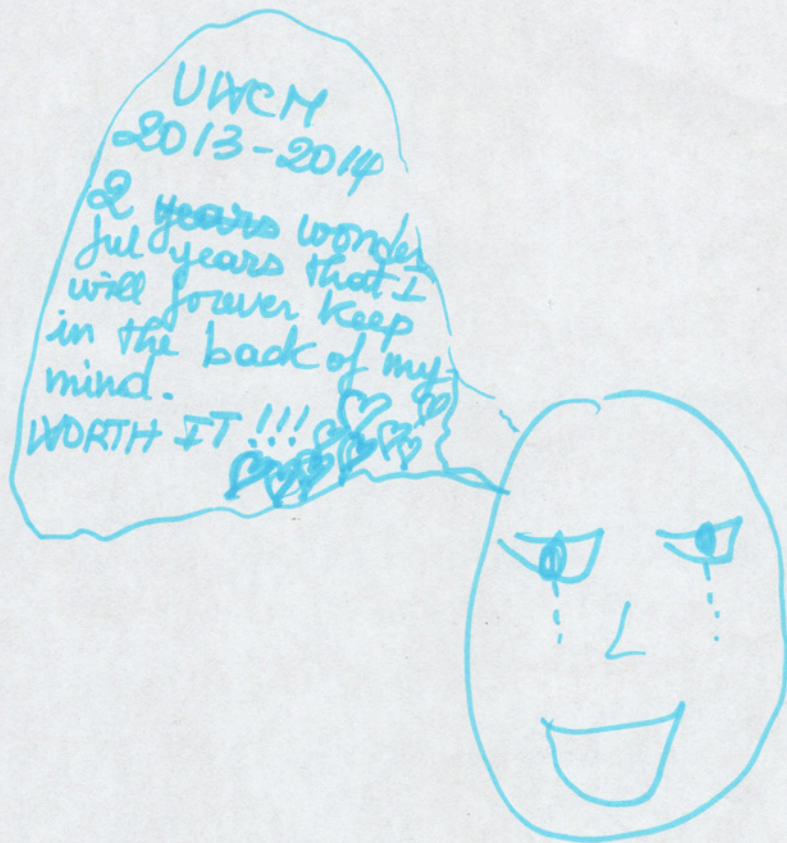 UWCM
2013-2014
2 years wonder
ful years that I
will forever keep
in the back of my
mind.
WORTH IT!!!